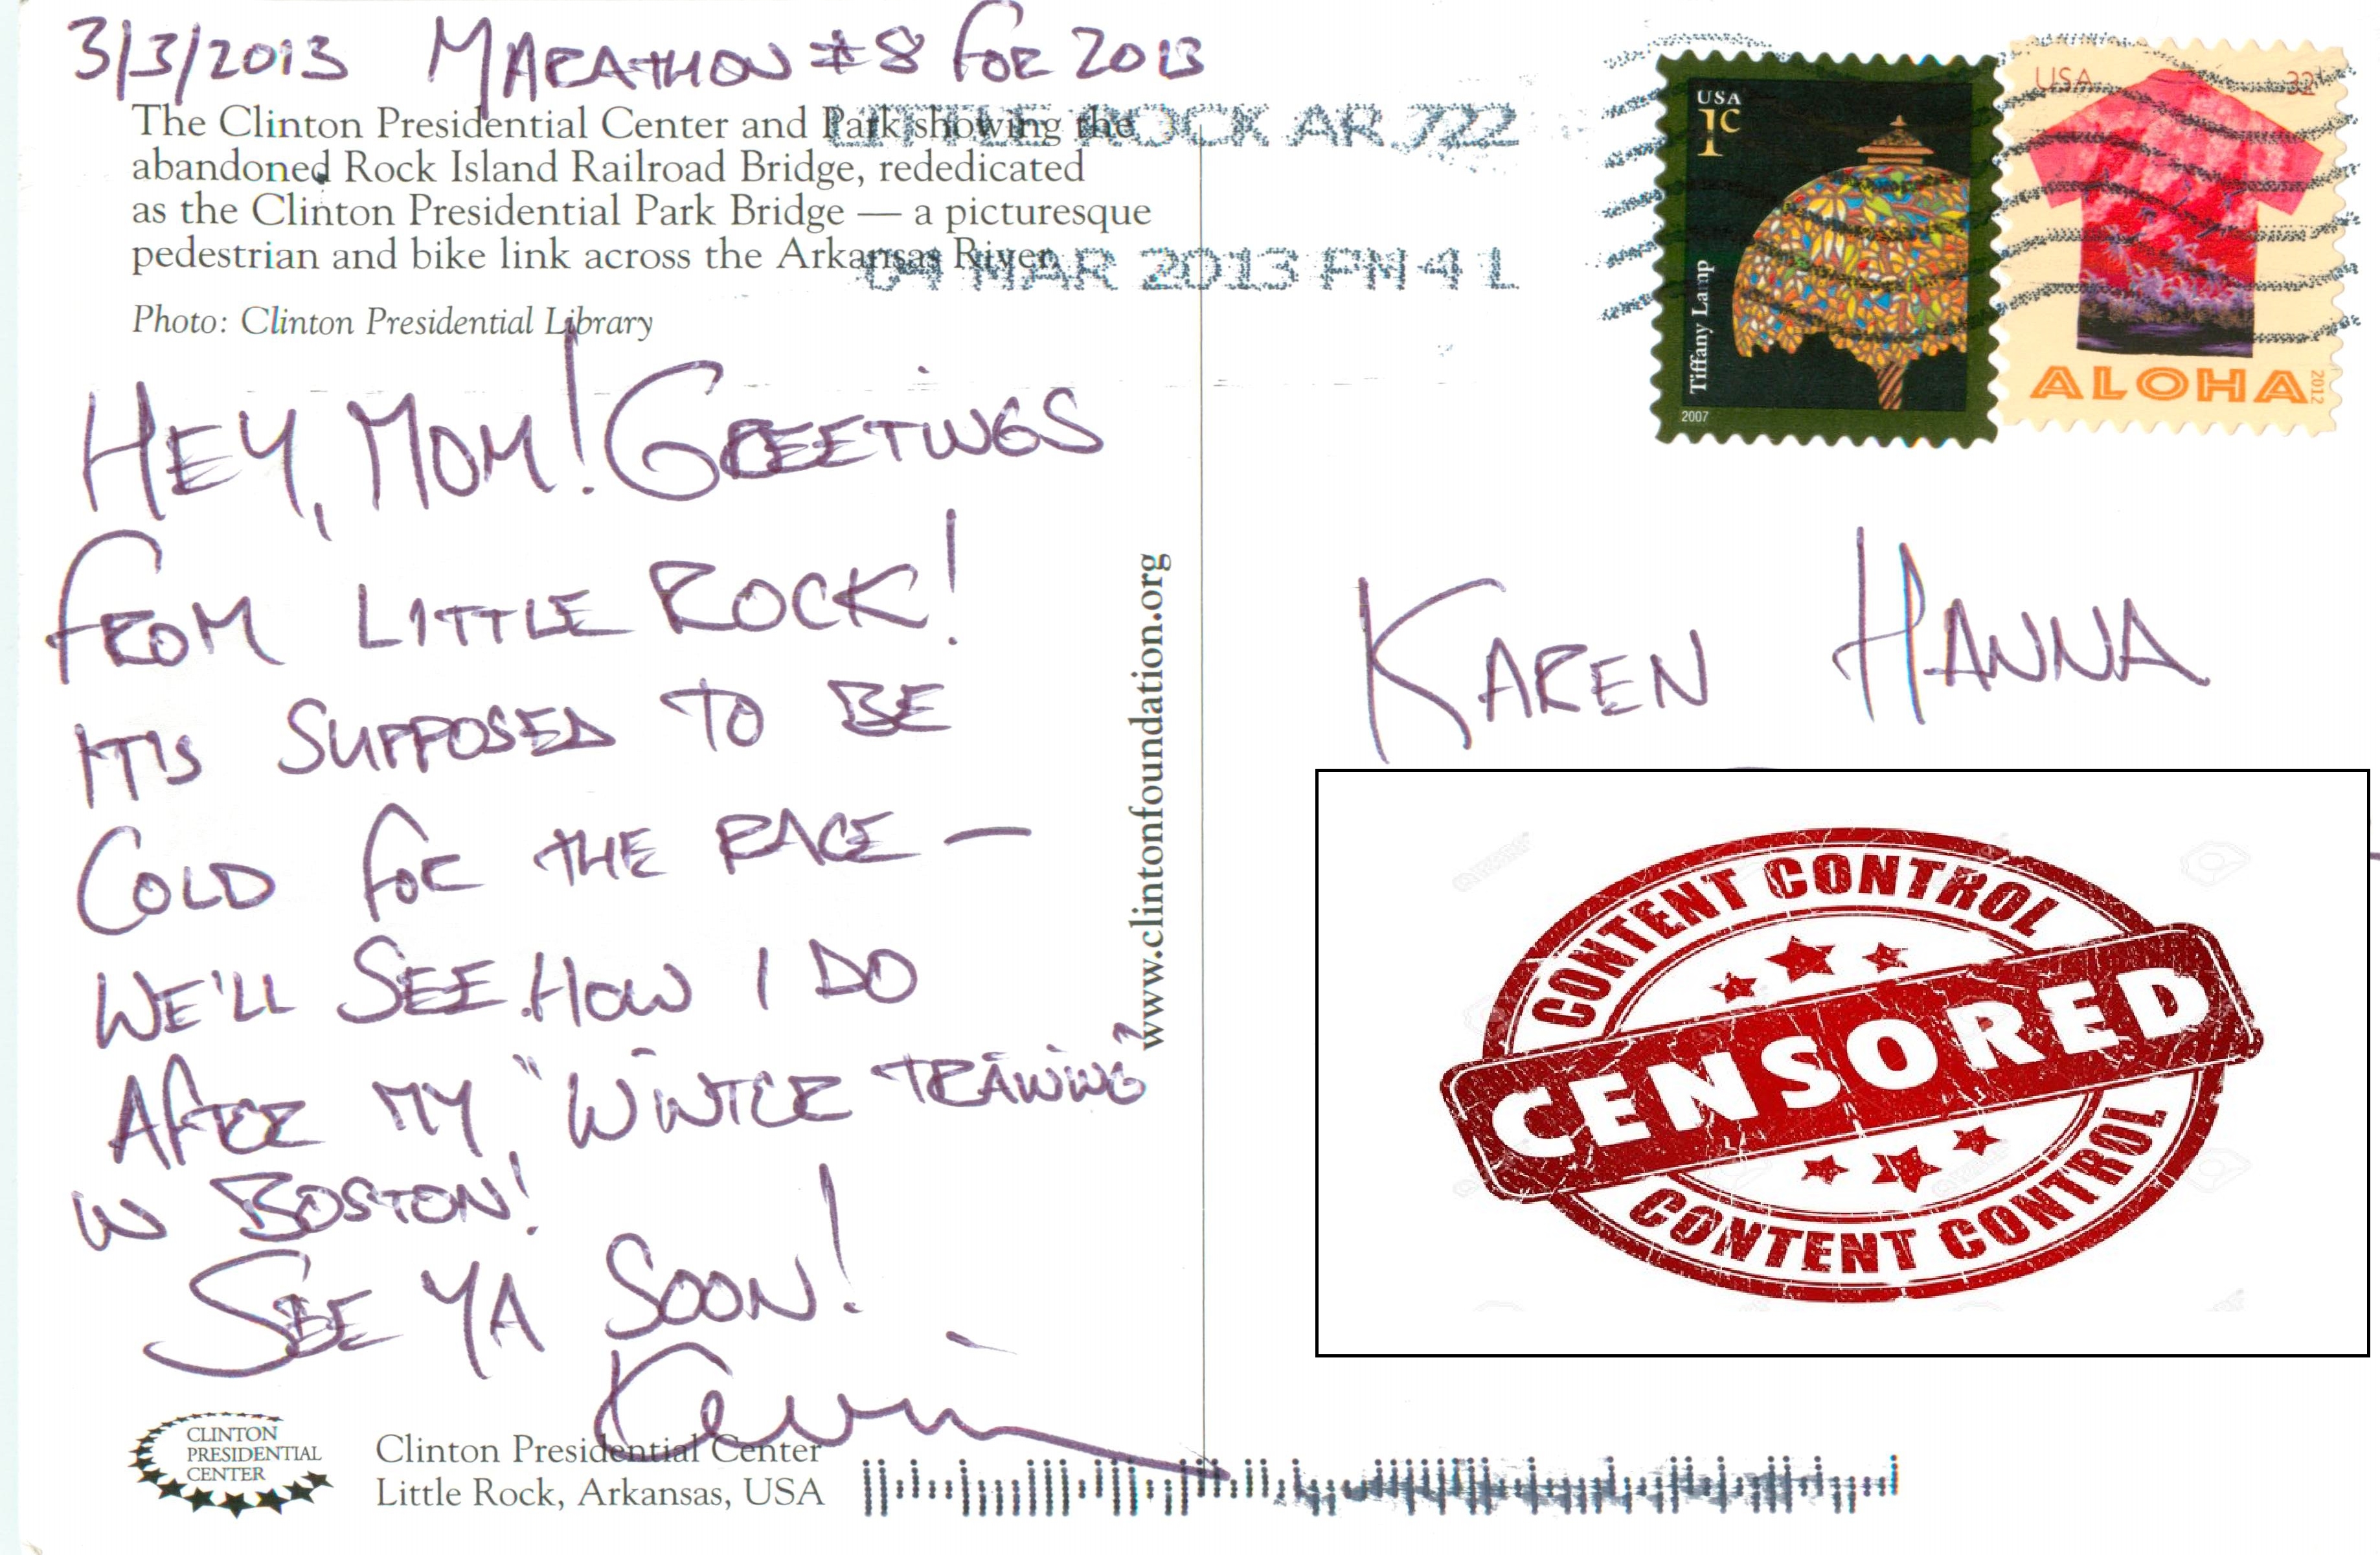 3/3/2013 MARATHON #8 FOR 2013
The Clinton Presidential Center and Park showing the
abandoned Rock Island Railroad Bridge, rededicated
as the Clinton Presidential Park Bridge — a picturesque
pedestrian and bike link across the Arkansas River.
Photo: Clinton Presidential Library
LITTLE ROCK AR 722
04 MAR 2013 PM 4 L
USA
1c
Tiffany Lamp
2007
USA 32
ALOHA
2012
HEY, MOM! GREETINGS
FROM LITTLE ROCK!
IT'S SUPPOSED TO BE
COLD FOR THE RACE —
WE'LL SEE HOW I DO
AFTER MY "WINTER TRAINING"
IN BOSTON!
SEE YA SOON!
Kevin
www.clintonfoundation.org
KAREN HANNA
CONTENT CONTROL
CENSORED
CONTENT CONTROL
CLINTON
PRESIDENTIAL
CENTER
Clinton Presidential Center
Little Rock, Arkansas, USA